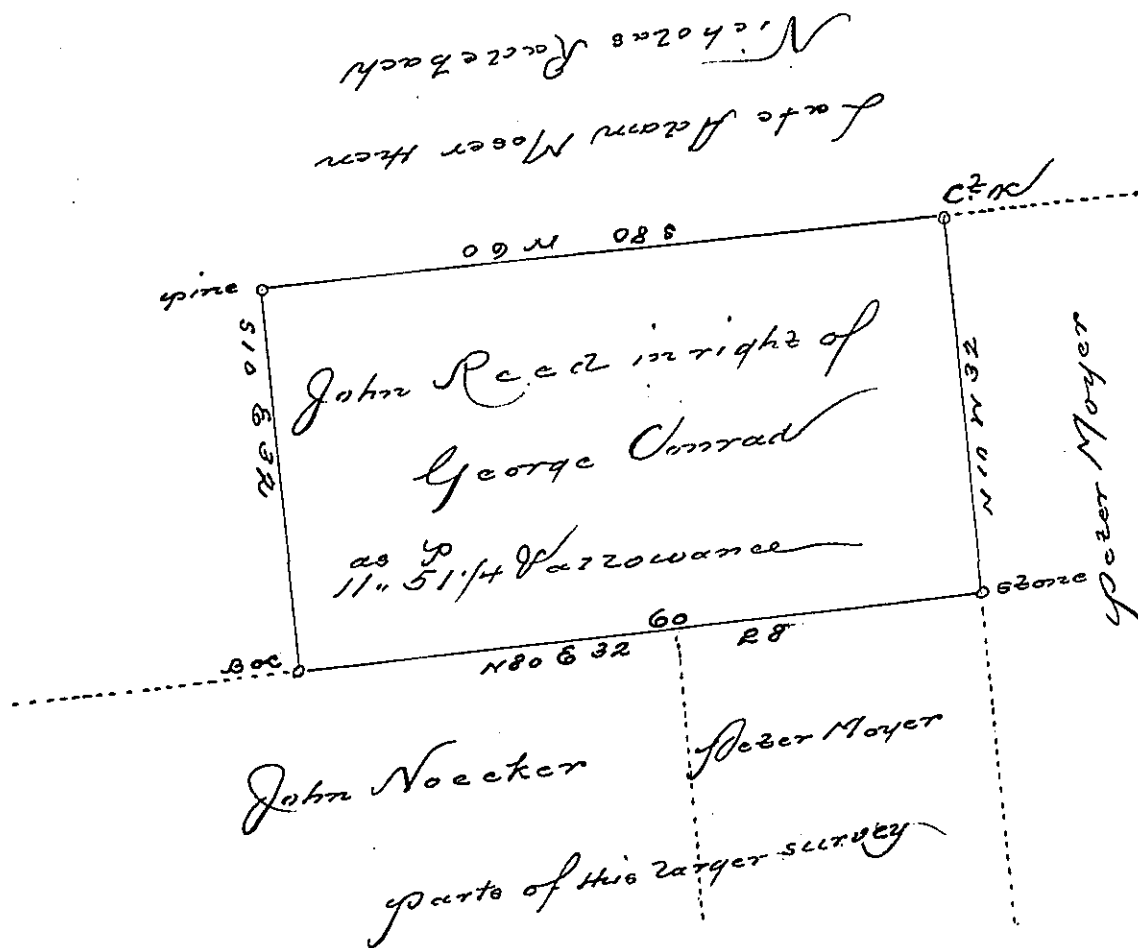 Nicholas Radebach
Late Adam Moser then
S80 W 60
pine
S10 E 32
John Reed in right of
George Conrad
as P
11" 51 1/4 & allowance
N10 W 32
Peter Moher
Stone
60
N80 E 32
28
John Noecker
Peter Moyer
parts of this larger survey